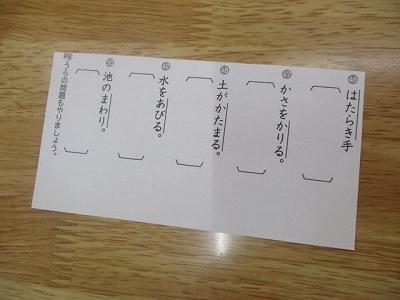 ㊻ はたらき手
㊼ かさをかりる。
㊽ 土がかたまる。
㊾ 水をあびる。
㊿ 池のまわり。
うらの問題もやりましょう。